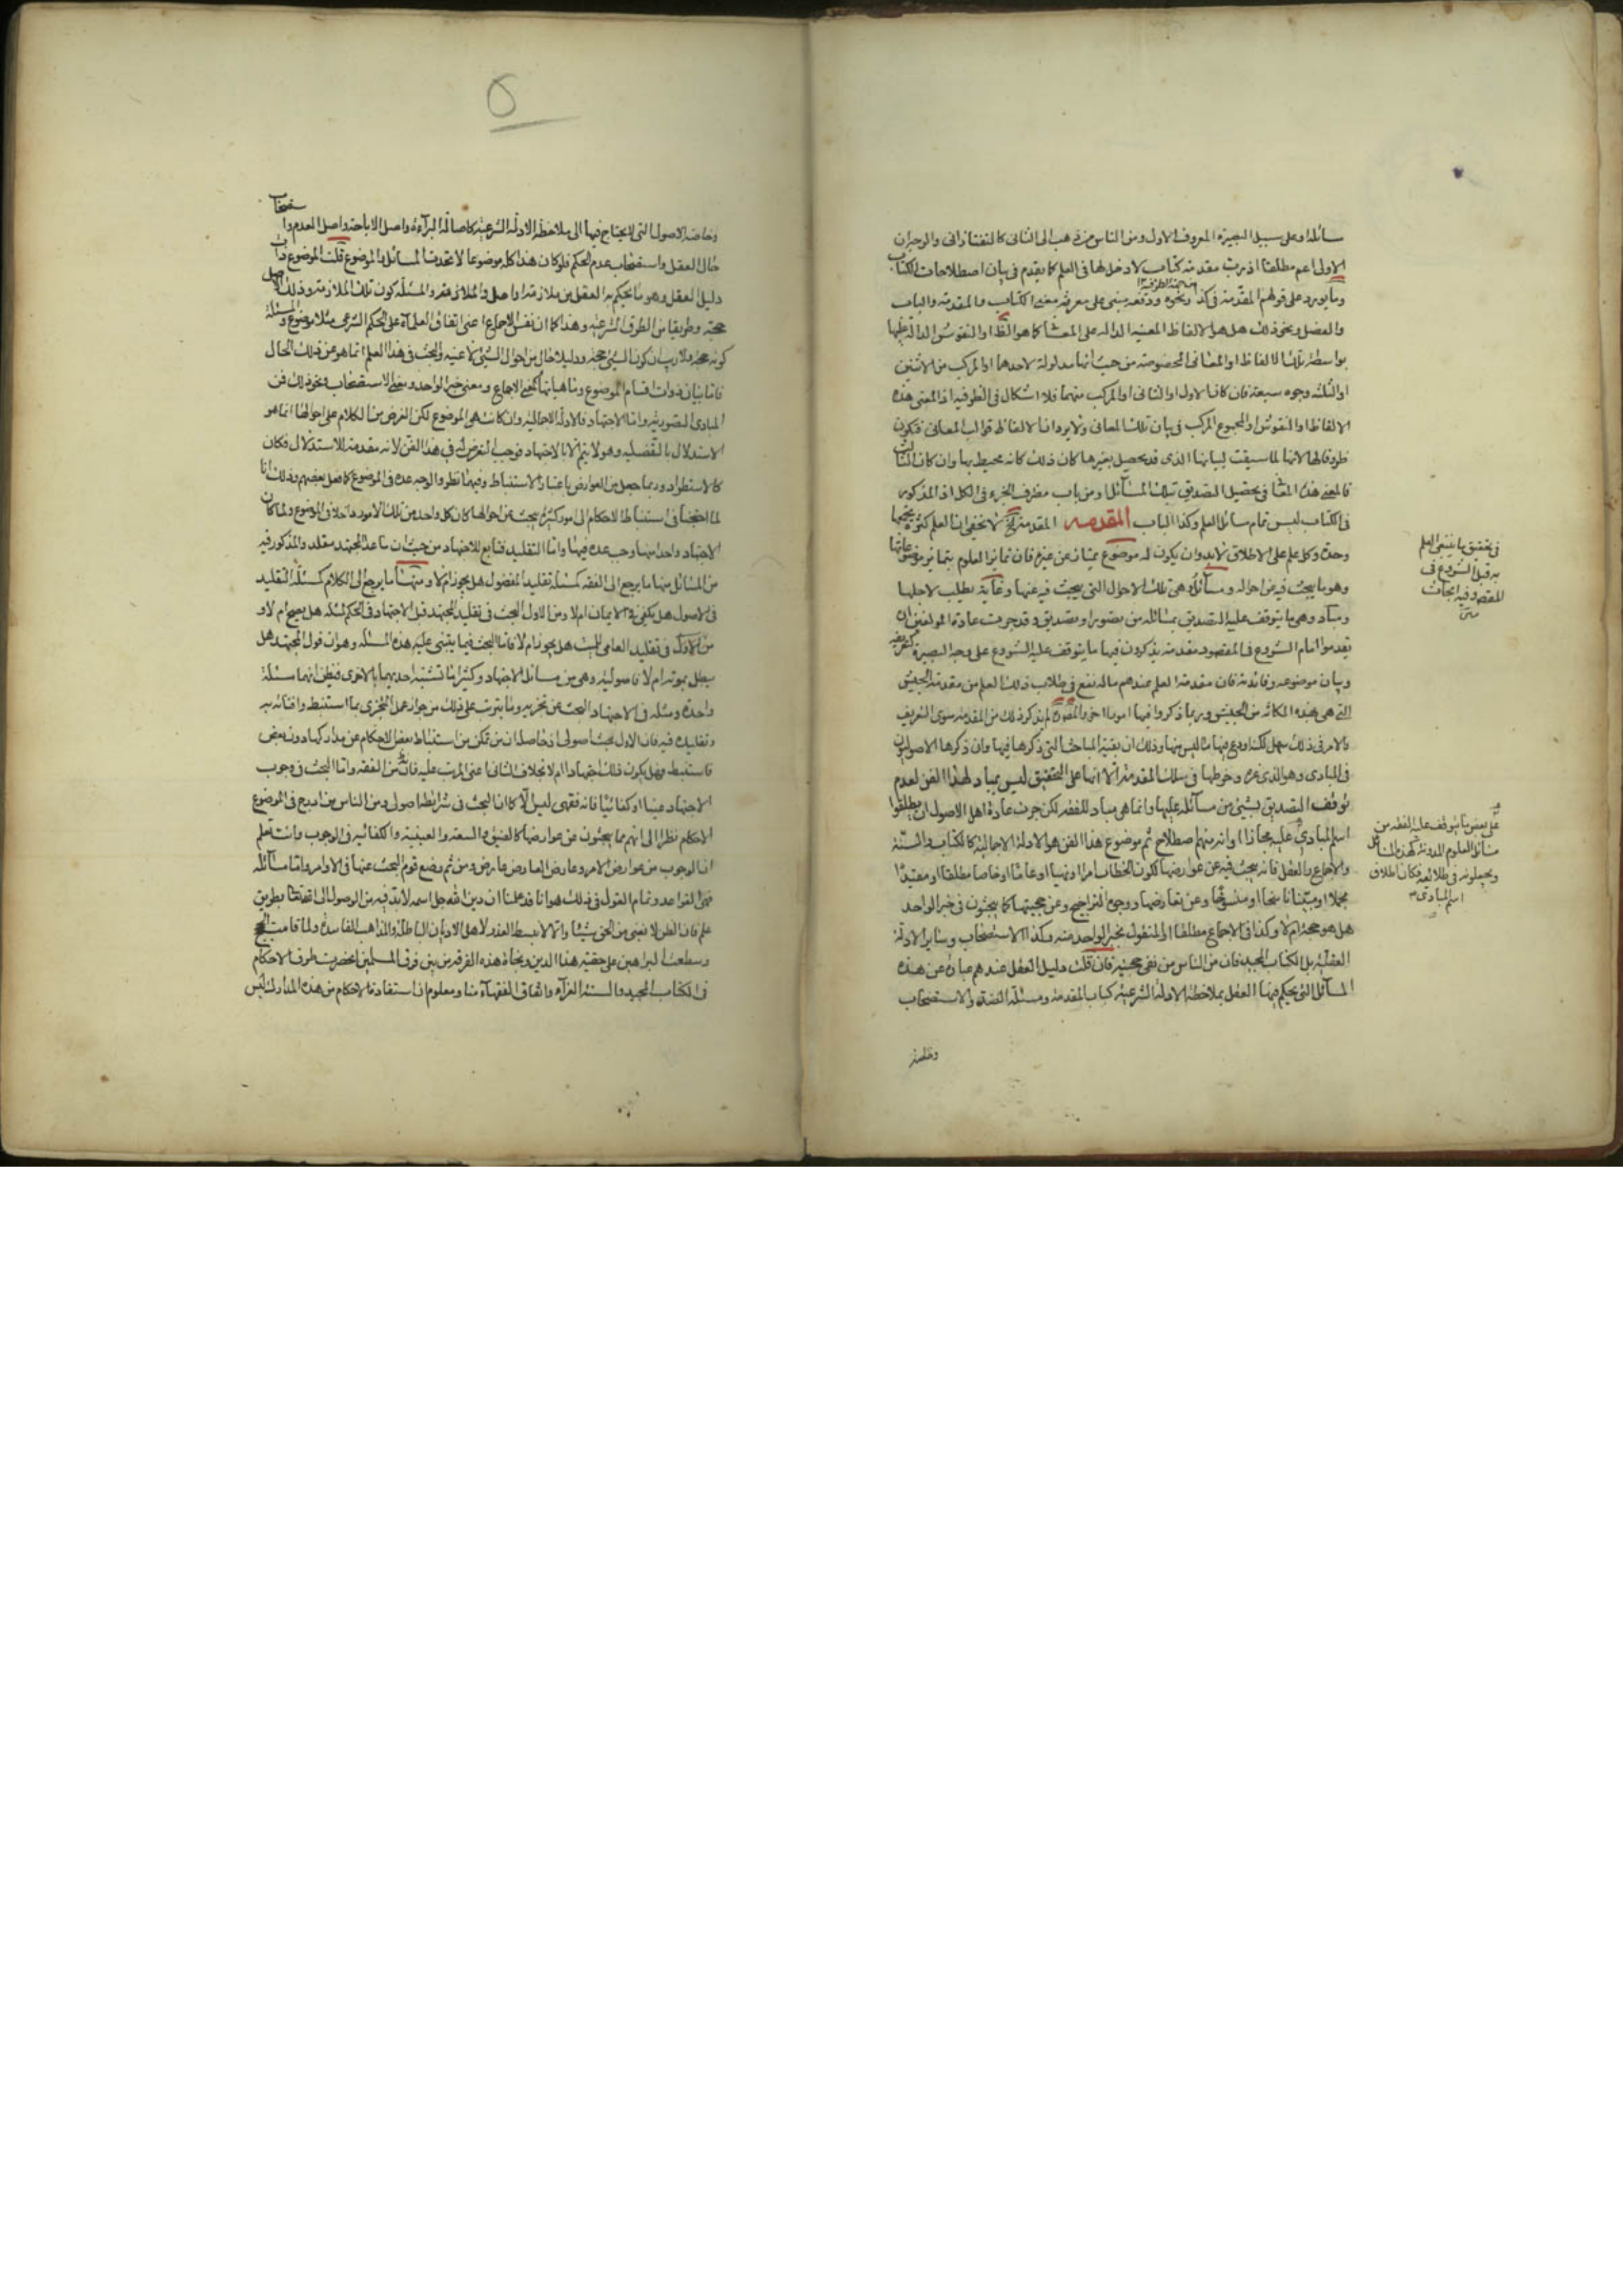 سائله او على سبيل البصيرة المعروف الاول ومن الناس من ذهب الى الثانى كالتفتازانى والوجهان
الاولى اعم مطلقا اذ رب مقدمة كتاب لا دخل لها فى العلم كما يقدم فى بيان اصطلاحات الكتاب
وما يورد على قولهم المقدمة فى كذا ونحوه ودفعه يبتنى على معرفة معنى الكتاب والمقدمة والباب
والفصل ونحو ذلك هل هو الالفاظ المعينة الدالة على المعانى كما هو الظ او النقوش الدالة عليها
بواسطة تلك الالفاظ او المعانى المخصوصة من حيث انها مدلولة لاحدهما او المركب من الاثنين
او الثلثة وجوه سبعة فان كان الاول او الثانى او المركب منهما فلا اشكال فى الظرفية اذ المعنى هذه
الالفاظ او النقوش او المجموع المركب فى بيان تلك المعانى ولا يرد ان الالفاظ قوالب المعانى فتكون
ظروفا لها لانها لما سيقت لبيانها الذى قد يحصل بغيرها كان ذلك كانه محيط بها وان كان الثالث
فالمعنى هذه المعانى فى تحصيل التصديق بتلك المسائل او من باب مظروف الجزء فى الكل اذ المذكور
فى الكتاب ليس تمام مسائل العلم وكذا الباب المقدمة المقدمة لا يخفى ان العلم كثرة يجمعها
وحدة وكل علم على الاطلاق لابد وان يكون له موضوع يمتاز به عن غيره فان تمايز العلوم بتمايز موضوعاتها
وهو ما يبحث فيه عن احواله ومسائل وهى تلك الاحوال التى يبحث فيه عنها وغاية يطلب لاجلها
ومباد وهى ما يتوقف عليه التصديق بمسائله من تصور او تصديق وقد جرت عادة المؤلفين ان
يقدموا امام الشروع فى المقصود مقدمة يذكرون فيها ما يتوقف عليه الشروع على وجه البصيرة كتعريفه
وبيان موضوعه وفائدته فان مقدمة العلم عندهم ما له نفع فى طلاب ذلك العلم من مقدمة الجيش
التى هى بهذه المكانة من الجيش وربما ذكروا فيها امورا اخر والمصنف لم يذكر ذلك من المقدمة سوى التعريف
والامر فى ذلك سهل لكنه اودع فيها ما ليس منها وذلك ان بقية المباحث التى ذكرها فيها وان ذكرها الاصوليون
فى المبادى وهو الذى غره وخرطها فى سلك المقدمة الا انها على التحقيق ليس بمباد لهذا الفن لعدم
توقف التصديق بشىء من مسائله عليها وانما هى مباد للفقه لكن جرت عادة اهل الاصول ان يطلقوا
اسم المبادى عليه مجازا او انه منهم اصطلاح ثم موضوع هذا الفن هو الادلة الاجمالية كالكتاب والسنة
والاجماع والعقل فانه يبحث فيه عن عوارضها ككون الخطاب امرا او نهيا او عاما او خاصا مطلقا او مقيدا
مجملا او مبينا ناسخا او منسوخا وعن تعارضها ووجوه التراجيح وعن حجيتها كما يبحثون فى خبر الواحد
هل هو حجة ام لا وكذا فى الاجماع مطلقا او المنقول بخبر الواحد منه وكذا الاستصحاب وساير الادلة
العقلية بل الكتاب المجيد فان من الناس من نفى حجيته فان قلت دليل العقل عندهم عبارة عن هذه
المسائل التى يحكم فيها العقل بملاحظة الادلة الشرعية كباب المقدمة ومسئلة الضد والاستصحاب
فى تحقيق ما ينبغى العلم
به قبل الشروع فى
المقصود وفيه ابحاث
على بعض ما يتوقف عليه الفقه من
مسائل العلوم المدونة كهذه المسائل
ويجعلونه فى طلائعه فكان اطلاق
اسم المبادى
وخاصة الاصول التى لا يحتاج فيها الى ملاحظة الادلة الشرعية كاصالة البراءة واصل الاباحة واصل العدم واستصحاب
حال العقل واستصحاب عدم الحكم فلو كان هذا كله موضوعا لاتحدت المسائل والموضوع قلت الموضوع ذات
دليل العقل وهو ما يحكم به العقل من ملازمة او اصل والمسئلة كون تلك الملازمة وذلك الاصل
حجة وطريقا من الطرق الشرعية وهذا كما ان نفس الاجماع اعنى اتفاق العلماء على الحكم الشرعى مثلا موضوع والمسئلة
كونه حجة ولا ريب ان كون الشىء حجة ودليلا حال من احوال الشىء لا عينه والبحث فى هذا العلم انما هو عن ذلك الحال
فاما بيان ذوات اقسام الموضوع وماهياتها كمعنى الاجماع ومعنى خبر الواحد ومعنى الاستصحاب ونحو ذلك فمن
المبادى التصورية واما الاجتهاد فالادلة الاجمالية وان كانت هى الموضوع لكن الغرض من الكلام على احوالها انما هو
الاستدلال بالتفصيلية وهو لا يتم الا بالاجتهاد فوجب التعرض له فى هذا الفن لانه مقدمة للاستدلال فكان
كالاستطراد وربما جعل من العوارض باعتبار الاستنباط وفيهما نظر والوجه عده فى الموضوع كما فعل بعضهم وذلك انا
لما احتجنا فى استنباط الاحكام الى امور كثيرة يبحث عن احوالها كان كل واحد من تلك الامور داخلا فى الموضوع ولما كان
الاجتهاد واحدا منها وجب عده فيها واما التقليد فتابع للاجتهاد من حيث ان ما عدا المجتهد مقلد والمذكور فيه
من المسائل منها ما يرجع الى الفقه كمسئلة تقليد المفضول هل يجوز ام لا ومنها ما يرجع الى الكلام كمسئلة التقليد
فى الاصول هل يكفى فى الايمان ام لا ومن الاول البحث فى تقليد المجتهد قبل الاجتهاد فى الحكم لمثله هل يصح ام لا و
من الاول فى تقليد العامى للميت هل يجوز ام لا فاما البحث فيما يبتنى عليه هذه المسئلة وهو ان قول المجتهد هل
يبطل بموته ام لا فاصولية وهى من مسائل الاجتهاد وكثيرا ما تشتبه احديهما بالاخرى فيظن انهما مسئلة
واحدة ومثله فى الاجتهاد البحث عن تجزيه وما يترتب على ذلك من جواز عمل المتجزى بما استنبط وافتائه به
وتقليده فيه فان الاول بحث اصولى وحاصله ان من تمكن من استنباط بعض الاحكام عن مداركها دون بعض
فاستنبط فهل يكون ذلك اجتهادا ام لا بخلاف الثانى اعنى المرتب عليه فانه من الفقه واما البحث فى وجوب
الاجتهاد عينا او كفائيا فانه فقهى ليس الا كما ان البحث فى شرائطه اصولى ومن الناس من ادرج فى الموضوع
الاحكام نظرا الى انهم مما يبحثون عن عوارضها كالضيق والسعة والعينية والكفائية فى الوجوب وانت تعلم
ان الوجوب من عوارض الامر وعارض العارض عارض ومن ثم وضع قوم البحث عنها فى الاوامر واما مسائله
فهى القواعد وتمام القول فى ذلك هو انا قد علمنا ان دين الله جل اسمه لابد فيه من الوصول الى بطريق
علم فان الظن لا يغنى من الحق شيئا والا لانبسط العذر لاهل الاديان الباطلة والمذاهب الفاسدة ولما قامت الحجج
وسطعت البراهين على حقية هذا الدين ونجاة هذه الفرقة من بين فرق المسلمين انحصرت طرق الاحكام
فى الكتاب المجيد والسنة الغراء واتفاق الفقهاء منا ومعلوم ان استفادة الاحكام من هذه المدارك ليس